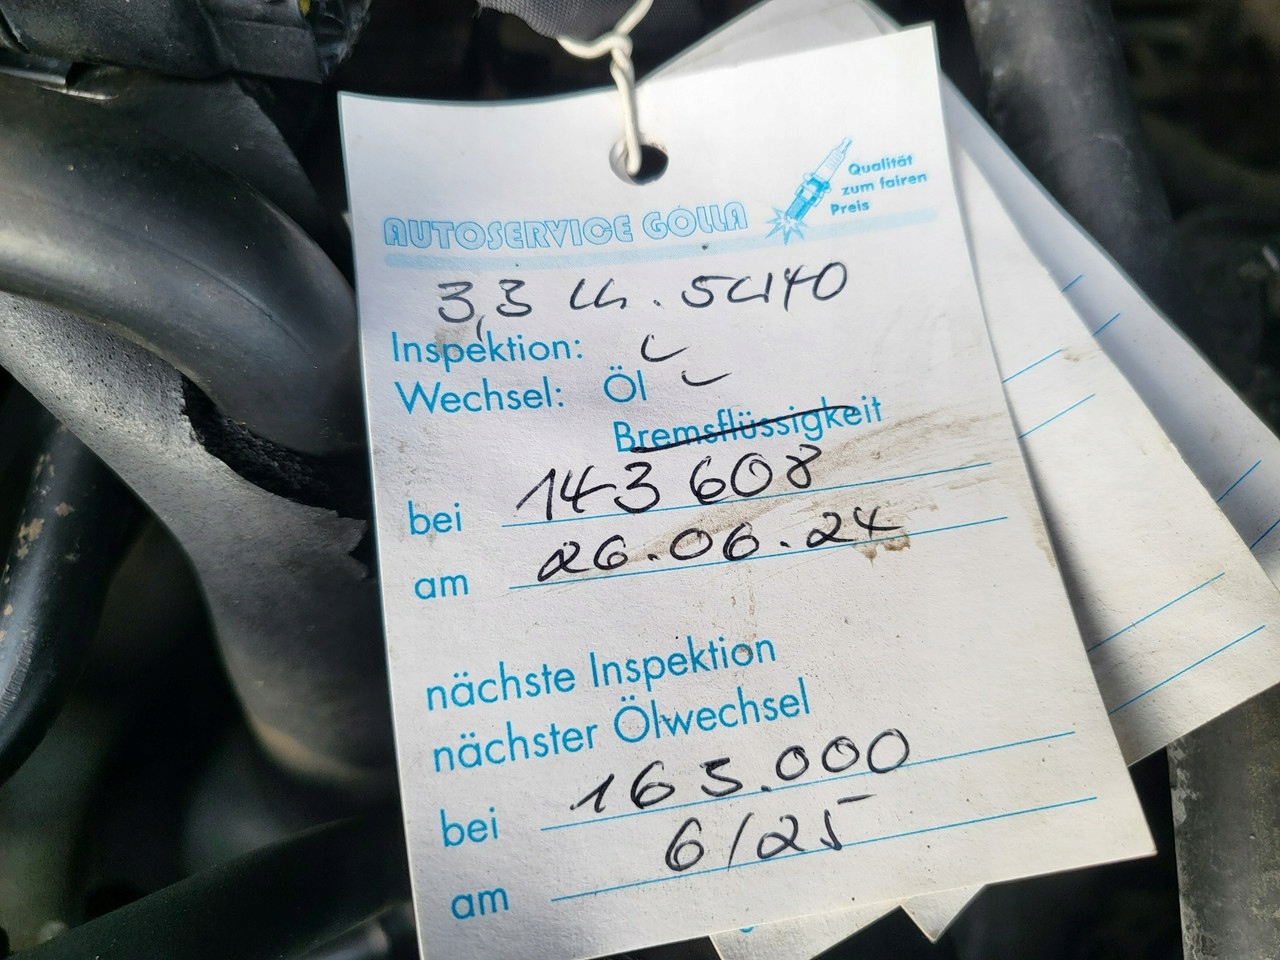 AUTOSERVICE GOLLA
Qualität
zum fairen
Preis
3,3 Ltr. 5W40
Inspektion: ✓
Wechsel: Öl ✓
Bremsflüssigkeit
bei 143 608
am 26.06.24
nächste Inspektion
nächster Ölwechsel
bei 163.000
am 6/25